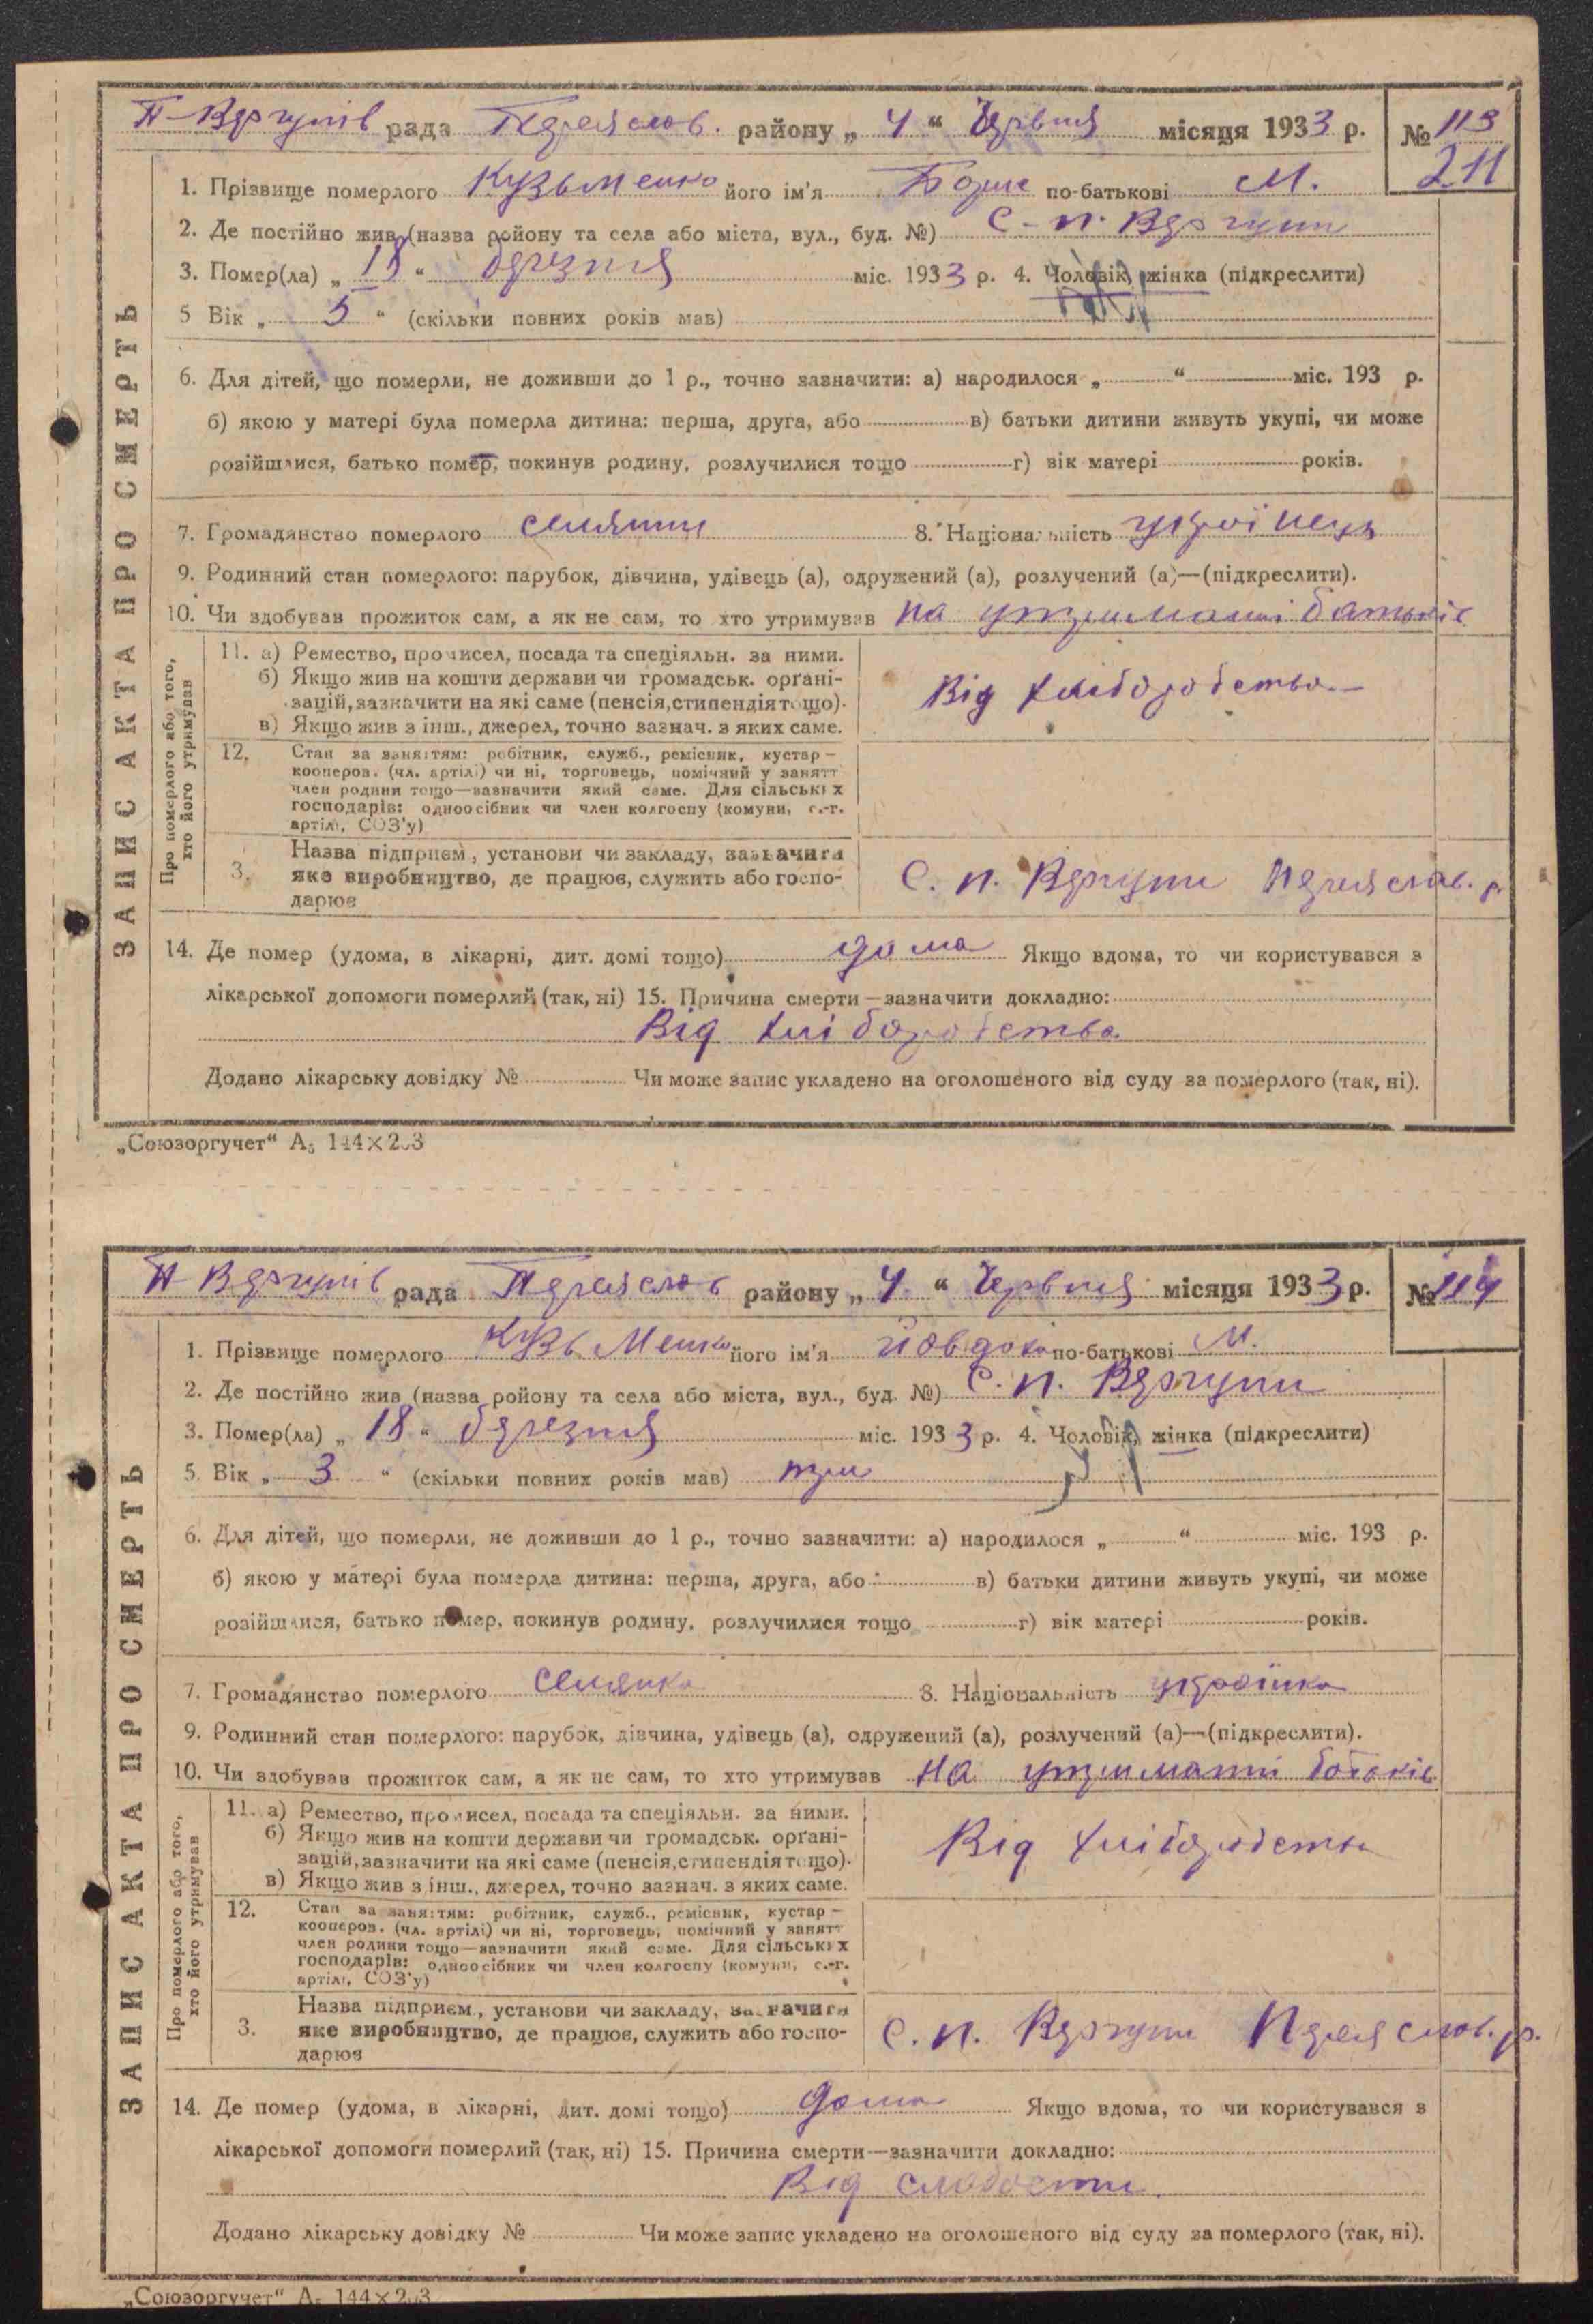 П-Вергунів рада Переяслов. району „ 4 “ Червня місяця 1933 р. № 113
211
1. Прізвище померлого Кузьменко його ім'я Борис по-батькові М.
2. Де постійно жив (назва ройону та села або міста, вул., буд. №) С-п. Вергуни
3. Помер(ла) „ 18 “ березня міс. 1933 р. 4. Чоловік, жінка (підкреслити)
5 Вік „ 5 “ (скільки повних років мав)
6. Для дітей, що померли, не доживши до 1 р., точно зазначити: а) народилося „ “ міс. 193 р.
б) якою у матері була померла дитина: перша, друга, або в) батьки дитини живуть укупі, чи може
розійшлися, батько помер, покинув родину, розлучилися тощо г) вік матері років.
7. Громадянство померлого селянин 8. Національність украінець
9. Родинний стан померлого: парубок, дівчина, удівець (а), одружений (а), розлучений (а)—(підкреслити).
10. Чи здобував прожиток сам, а як не сам, то хто утримував на утриманні батьків
ЗАПИС АКТА ПРО СМЕРТЬ
Про померлого або того,
хто його утримував
11. а) Ремество, промисел, посада та спеціяльн. за ними.
б) Якщо жив на кошти держави чи громадськ. орґані-
зацій, зазначити на які саме (пенсія, стипендія тощо).
в) Якщо жив з інш., джерел, точно зазнач. з яких саме.
Від хліборобства
12. Стан за заняттям: робітник, служб., ремісник, кустар —
кооперов. (чл. артілі) чи ні, торговець, помічний у занятт
член родини тощо—зазначити який саме. Для сільських
господарів: одноосібник чи член колгоспу (комуни, с.-г.
артілі, СОЗ'у)
3. Назва підприєм., установи чи закладу, зазначити
яке виробництво, де працює, служить або госпо-
дарює
С. п. Вергуни Переяслов. р
14. Де помер (удома, в лікарні, дит. домі тощо) дома Якщо вдома, то чи користувався з
лікарської допомоги померлий (так, ні) 15. Причина смерти—зазначити докладно:
Від хліборобства
Додано лікарську довідку № Чи може запис укладено на оголошеного від суду за померлого (так, ні).
„Союзоргучет“ А5 144×203
П-Вергунів рада Переяслов району „ 4. “ Червня місяця 1933 р. № 114
1. Прізвище померлого Кузьменко його ім'я Йовдоха по-батькові М.
2. Де постійно жив (назва ройону та села або міста, вул., буд. №) С. п. Вергуни
3. Помер(ла) „ 18 “ березня міс. 1933 р. 4. Чоловік, жінка (підкреслити)
5. Вік „ 3 “ (скільки повних років мав) три
6. Для дітей, що померли, не доживши до 1 р., точно зазначити: а) народилося „ “ міс. 193 р.
б) якою у матері була померла дитина: перша, друга, або в) батьки дитини живуть укупі, чи може
розійшлися, батько помер, покинув родину, розлучилися тощо г) вік матері років.
7. Громадянство померлого селянка 8. Національність українка
9. Родинний стан померлого: парубок, дівчина, удівець (а), одружений (а), розлучений (а)—(підкреслити).
10. Чи здобував прожиток сам, а як не сам, то хто утримував на утриманні батьків
ЗАПИС АКТА ПРО СМЕРТЬ
Про померлого або того,
хто його утримував
11. а) Ремество, промисел, посада та спеціяльн. за ними.
б) Якщо жив на кошти держави чи громадськ. орґані-
зацій, зазначити на які саме (пенсія, стипендія тощо).
в) Якщо жив з інш., джерел, точно зазнач. з яких саме.
Від хліборобства
12. Стан за заняттям: робітник, служб., ремісник, кустар —
кооперов. (чл. артілі) чи ні, торговець, помічний у занятт
член родини тощо—зазначити який саме. Для сільських
господарів: одноосібник чи член колгоспу (комуни, с.-г.
артілі, СОЗ'у)
3. Назва підприєм., установи чи закладу, зазначити
яке виробництво, де працює, служить або госпо-
дарює
С. п. Вергуни Переяслов. р.
14. Де помер (удома, в лікарні, дит. домі тощо) дома Якщо вдома, то чи користувався з
лікарської допомоги померлий (так, ні) 15. Причина смерти—зазначити докладно:
Від слабости
Додано лікарську довідку № Чи може запис укладено на оголошеного від суду за померлого (так, ні).
„Союзоргучет“ А5 144×203